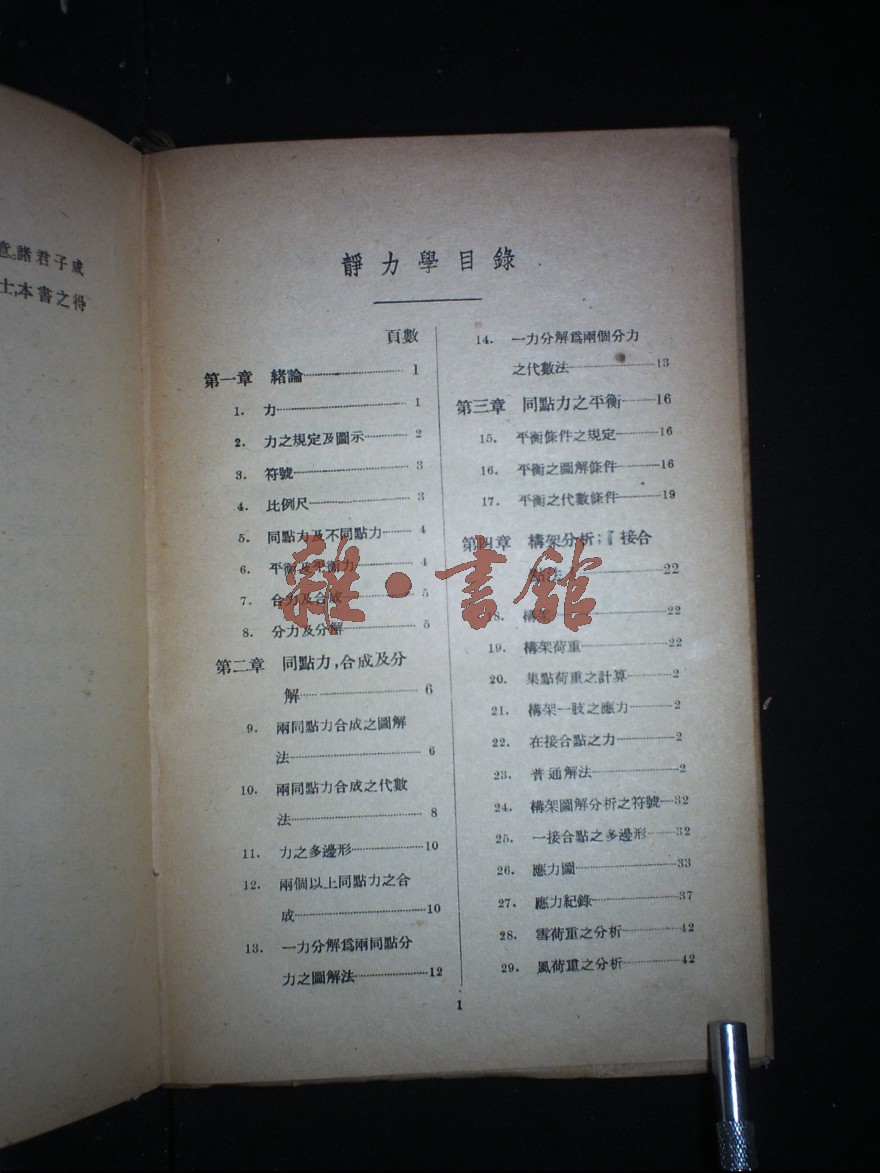 意。諸君子咸
士,本書之得
靜力學目錄
頁數
第一章 緒論 1
1. 力 1
2. 力之規定及圖示 2
3. 符號 3
4. 比例尺 3
5. 同點力及不同點力 4
6. 平衡及平衡力 4
7. 合力及合成 5
8. 分力及分解 5
第二章 同點力,合成及分
解 6
9. 兩同點力合成之圖解
法 6
10. 兩同點力合成之代數
法 8
11. 力之多邊形 10
12. 兩個以上同點力之合
成 10
13. 一力分解爲兩同點分
力之圖解法 12
14. 一力分解爲兩個分力
之代數法 13
第三章 同點力之平衡 16
15. 平衡條件之規定 16
16. 平衡之圖解條件 16
17. 平衡之代數條件 19
第四章 構架分析;『接合
點法 22
18. 構架 22
19. 構架荷重 22
20. 集點荷重之計算 2
21. 構架一肢之應力 2
22. 在接合點之力 2
23. 普通解法 2
24. 構架圖解分析之符號 32
25. 一接合點之多邊形 32
26. 應力圖 33
27. 應力紀錄 37
28. 雪荷重之分析 42
29. 風荷重之分析 42
1
雜·書館